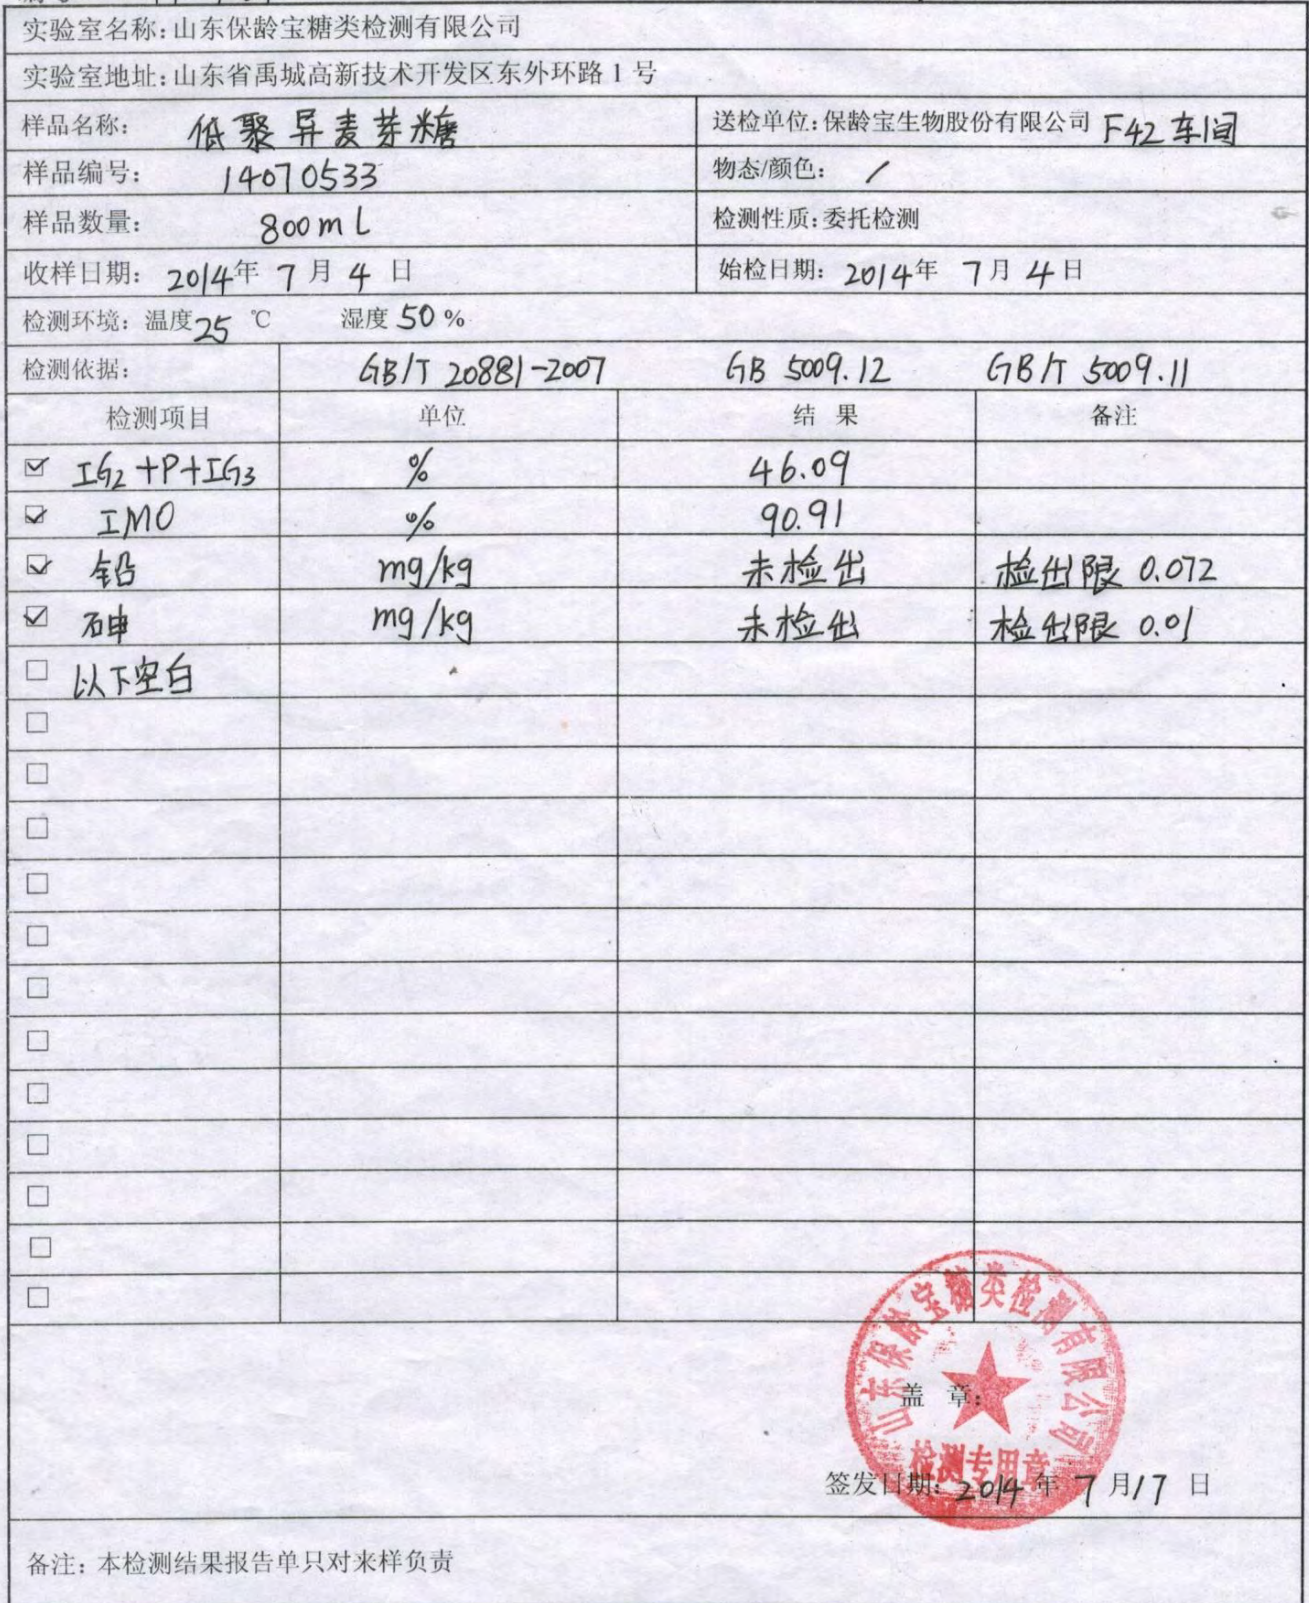 实验室名称:山东保龄宝糖类检测有限公司
实验室地址:山东省禹城高新技术开发区东外环路1号
样品名称: 低聚异麦芽糖 送检单位:保龄宝生物股份有限公司 F42车间
样品编号: 14070533 物态/颜色: /
样品数量: 800ml 检测性质:委托检测
收样日期: 2014年 7月 4日 始检日期: 2014年 7月 4日
检测环境: 温度25℃ 湿度50%
检测依据: GB/T 20881-2007 GB 5009.12 GB/T 5009.11
检测项目 单位 结果 备注
☑ IG₂+P+IG₃ % 46.09
☑ IMO % 90.91
☑ 铅 mg/kg 未检出 检出限 0.072
☑ 砷 mg/kg 未检出 检出限 0.01
□ 以下空白
山东保龄宝糖类检测有限公司
盖 章:
检测专用章
签发日期: 2014年 7月17日
备注: 本检测结果报告单只对来样负责